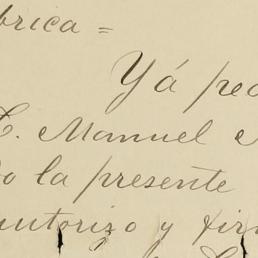 brica =
Yá ped
C. Manuel
la presente
autorizo y fir